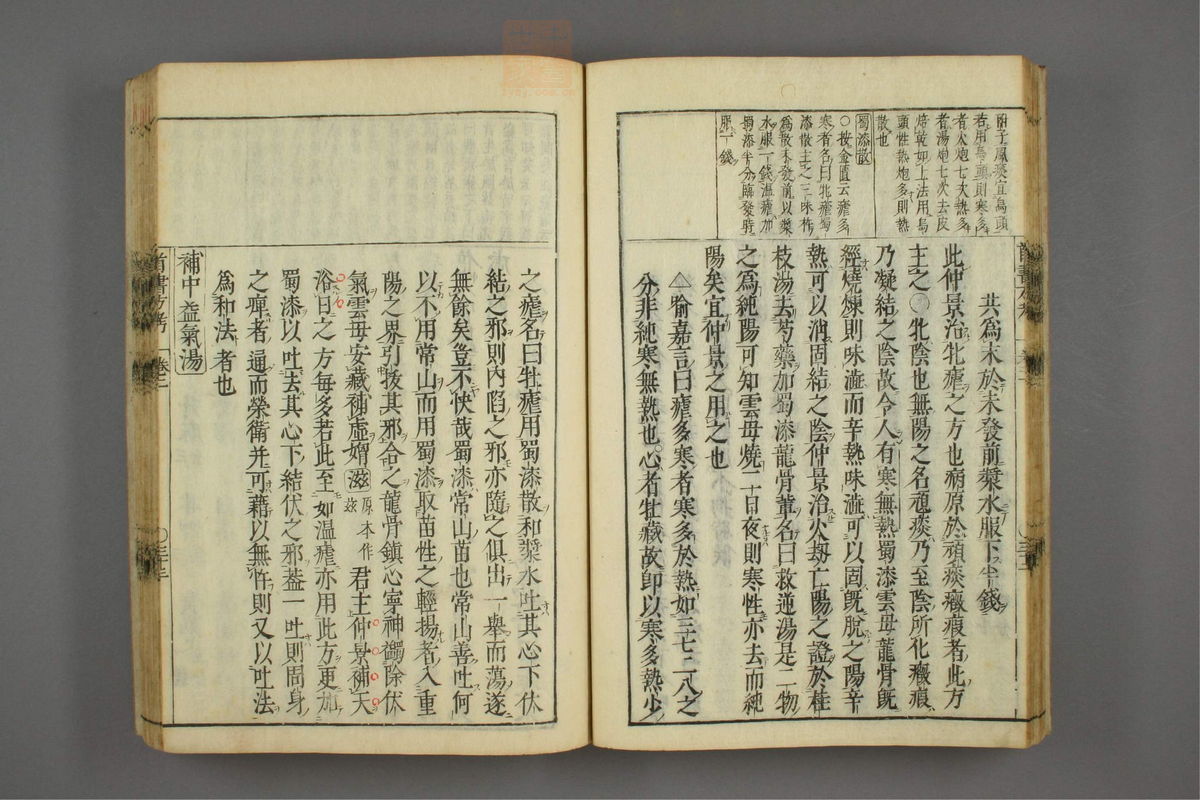 附子風痰宜烏頭
若用烏頭則寒多
者火炮七次熱多
者湯炮七次去皮
焙乾如上法用烏
頭性熱炮多則熱
散也
蜀漆散
○按金匱云瘧多
寒者名曰牝瘧蜀
漆散主之三味杵
爲散未發前以漿
水服一錢溫瘧加
蜀漆半分臨發時
服一錢
共爲末於未發前漿水服下半錢
此仲景治牝瘧之方也病原於頑痰癥瘕者此方
主之○牝陰也無陽之名頑痰乃至陰所化癥瘕
乃凝結之陰故令人有寒無熱蜀漆雲母龍骨旣
經燒煉則味澁而辛熱味澁可以固旣脫之陽辛
熱可以消固結之陰仲景治火劫亡陽之證於桂
枝湯去芍藥加蜀漆龍骨輩名曰救逆湯是二物
之爲純陽可知雲母燒二日夜則寒性亦去而純
陽矣宜仲景之用之也
△喻嘉言曰瘧多寒者寒多於熱如三七二八之
分非純寒無熱也心者牡藏故卽以寒多熱少
之瘧名曰牡瘧用蜀漆散和漿水吐其心下伏
結之邪則內陷之邪亦隨之俱出一舉而蕩遂
無餘矣豈不快哉蜀漆常山苗也常山善吐何
以不用常山而用蜀漆取苗性之輕揚者入重
陽之界引拔其邪合之龍骨鎮心寧神蠲除伏
氣雲母安藏補虛媚滋原本作茲君主仲景補天
浴日之方每多若此至如溫瘧亦用此方更加
蜀漆以吐去其心下結伏之邪蓋一吐則周身
之痺者通而榮衛并可藉以無忤則又以吐法
爲和法者也
補中益氣湯
卷三